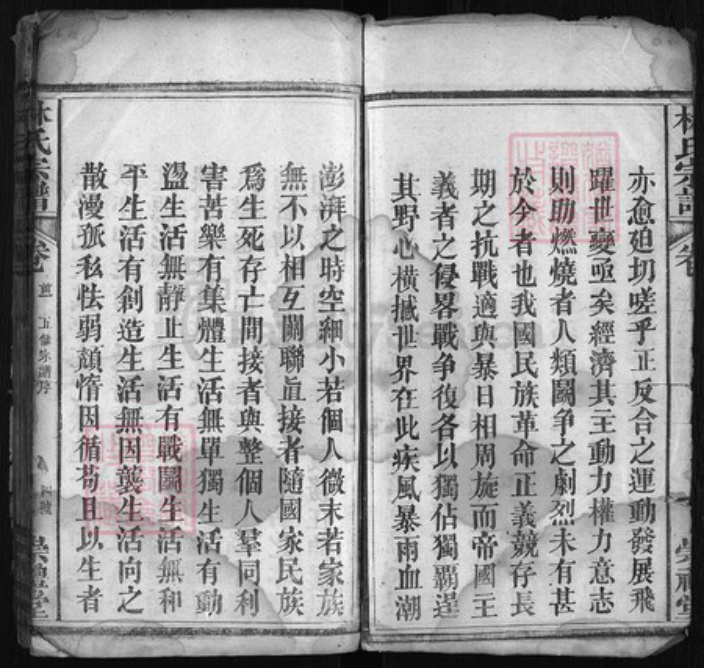 亦愈廹切嗟乎正反合之運動發展飛
躍世變亟矣經濟其主動力權力意志
則助燃燒者人類鬭争之劇烈未有甚
於今者也我國民族革命正義競存長
期之抗戰適與暴日相周旋而帝國主
義者之侵畧戰争復各以獨佔獨霸逞
其野心橫撼世界在此疾風暴雨血潮
澎湃之時空細小若個人微末若家族
無不以相互關聯直接者隨國家民族
爲生死存亡間接者與整個人羣同利
害苦樂有集體生活無單獨生活有動
盪生活無靜止生活有戰鬭生活無和
平生活有創造生活無因襲生活向之
散漫孤私怯弱頹惰因循苟且以生者
林氏宗譜
卷
五修宗譜序
崇禮堂